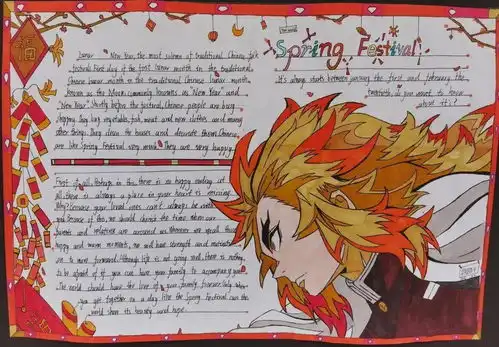 福
Spring Festival!
It's always starts between january the first and february the
twentieth, do you want to know
about it?
Lunar New Year, the most solemn of traditional Chinese folk
festivals First day of the first lunar month in the traditional
Chinese lunar month in the traditional Chinese lunar month
known as the Moon, commonly known as "New Year" and
"New Year" Shortly before the festival, Chinese people are busy
shopping They buy vegetables, fish, meat and new clothes and many
other things They clean the houses and decorate them Chinese
are like Spring Festival very much They are very happy.
First of all, Perhaps in this there is no happy ending, yet
all there is always a place in your heart is amazing
Why? Because your loved ones can't always be with
you Because if this, we should cherish the time when our
parents and relatives are around us Wherever we spend those
happy and warm moments, we will have strength and motivation
to move forward. Although life is not going well, there is nothing
to be afraid of if you can have your family to accompany you
The world should have the love of your family forever Only when
you get together on a day like the Spring Festival can the
world show its beauty and hope.